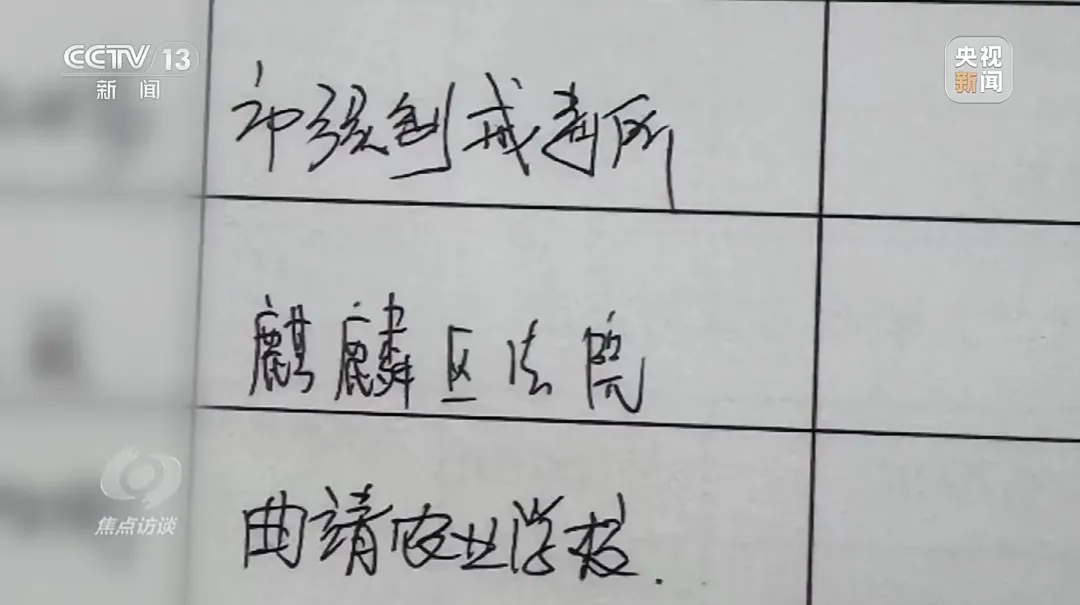 CCTV 13
新闻
央视
新闻
市强制戒毒所
麒麟区法院
曲靖农业学校.
焦点访谈